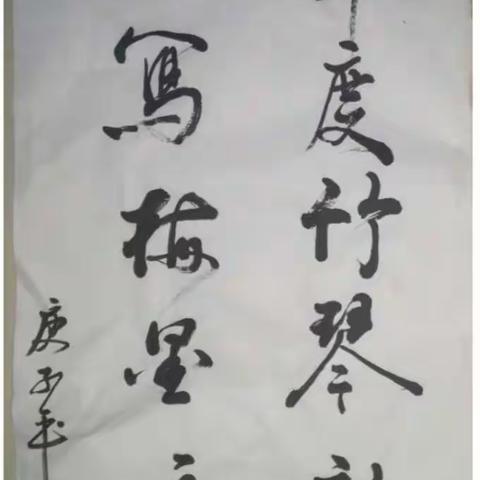 度竹琴
寫梅墨
庚子年